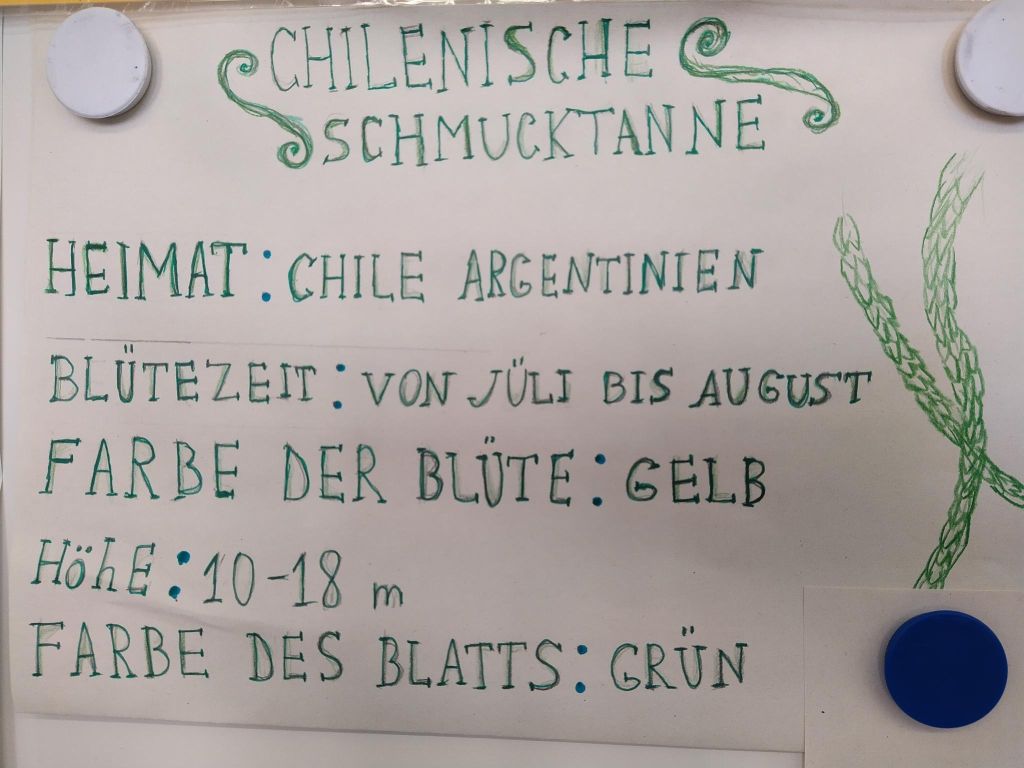 CHILENISCHE
SCHMUCKTANNE
HEIMAT: CHILE ARGENTINIEN
BLÜTEZEIT: VON JÜLI BIS AUGUST
FARBE DER BLÜTE: GELB
HöhE: 10-18 m
FARBE DES BLATTS: GRÜN